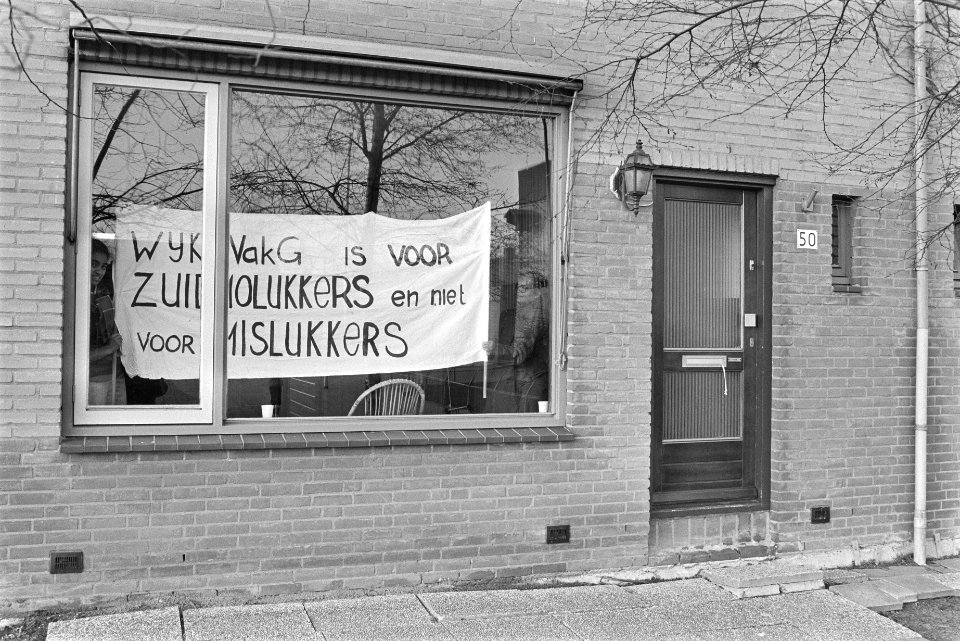 WYK VakG IS VOOR
ZUIDMOLUKKERS en niet
VOOR MISLUKKERS
50